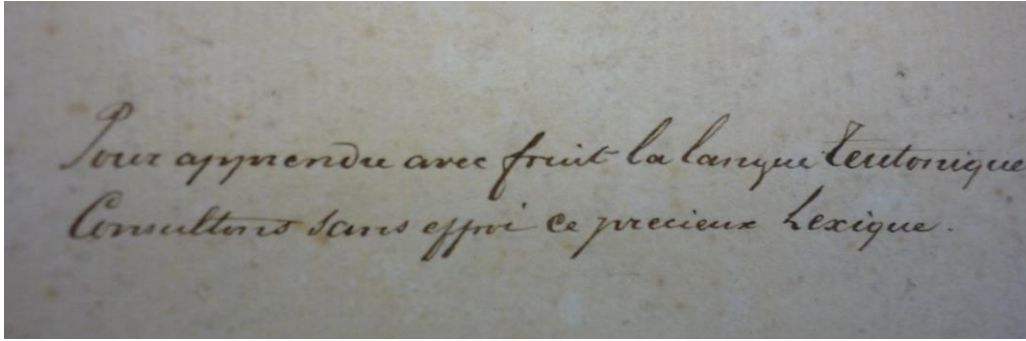 Pour apprendre avec fruit la langue teutonique
Consultons sans effroi ce precieux Lexique.